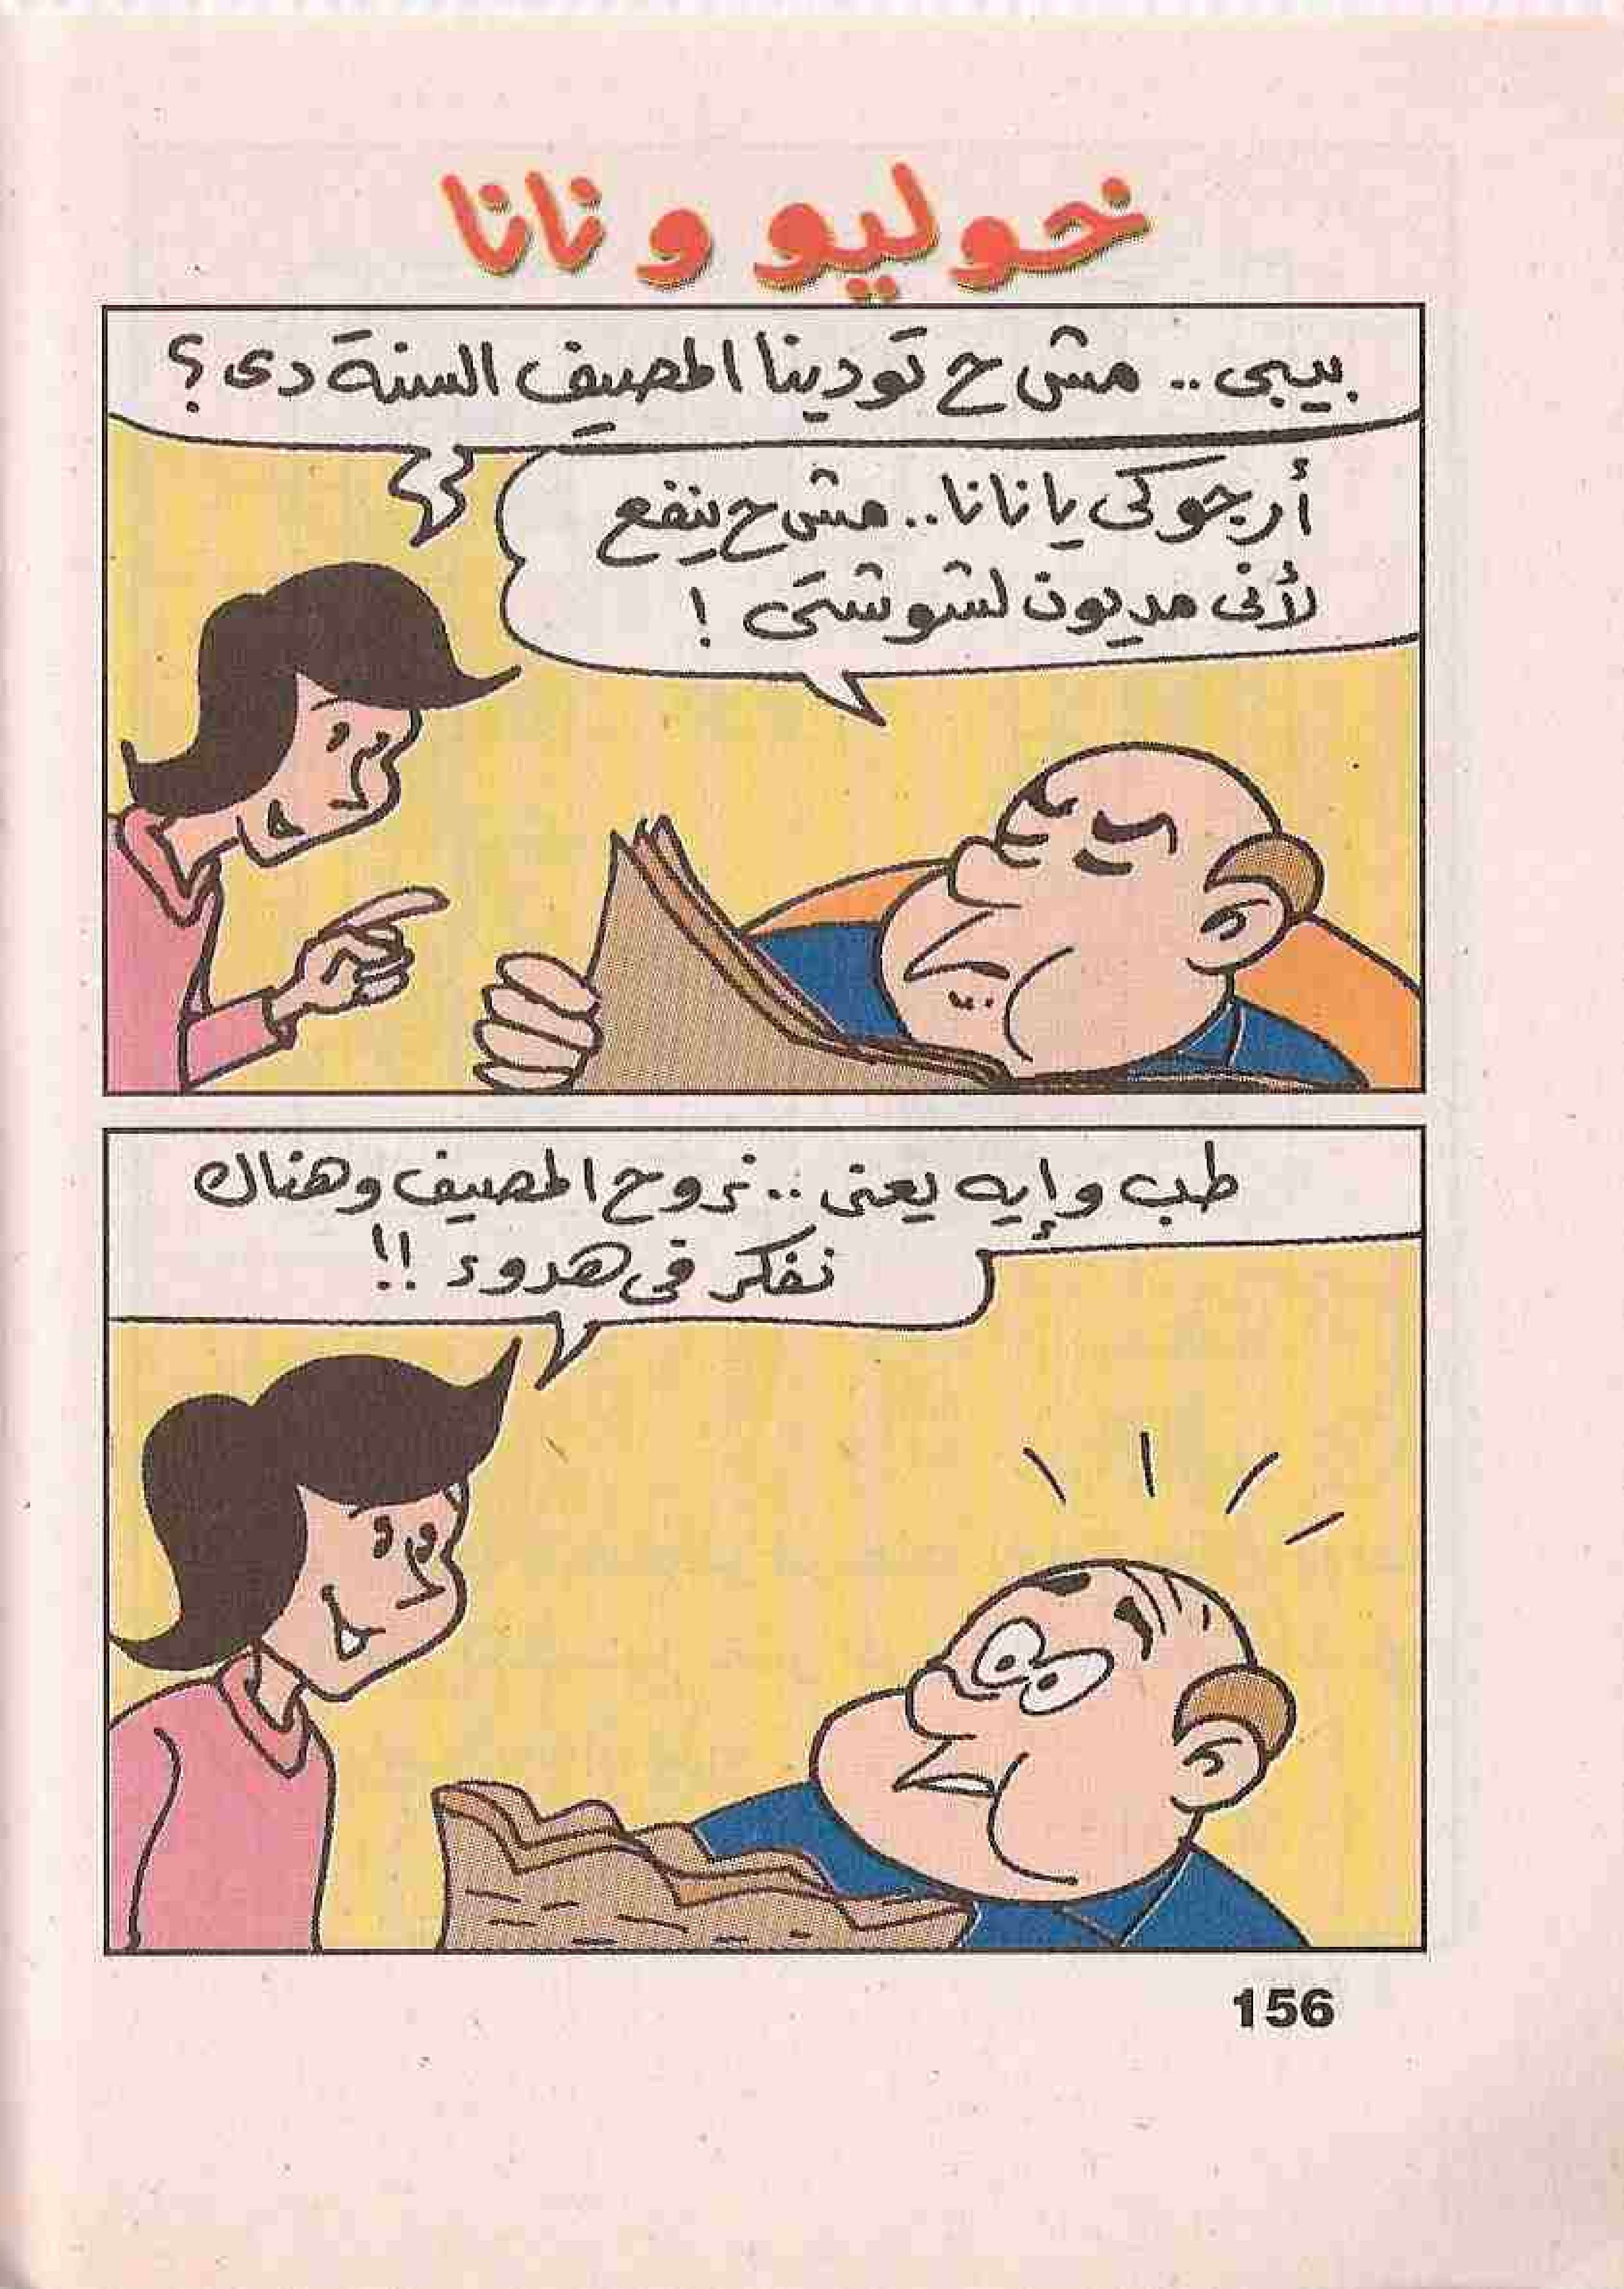 خوليو و نانا
بيبى .. مش ح تودينا المصيف السنة دى ؟
أرجوكى يا نانا .. مش ح ينفع
لأنى مديون لشوشتى !
طب وإيه يعنى .. نروح المصيف وهناك
نفكر فى هدوء !!
156